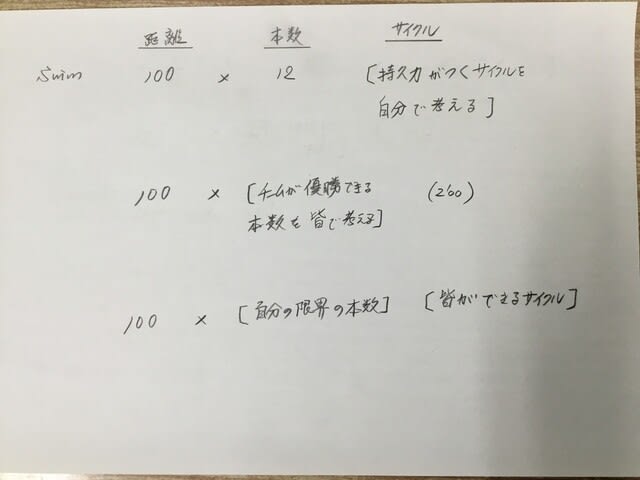 距離 本数 サイクル
Swim 100 × 12 [持久力がつくサイクルを
自分で考える]
100 × [チームが優勝できる (2'00)
本数を皆で考える]
100 × [自分の限界の本数] [皆ができるサイクル]